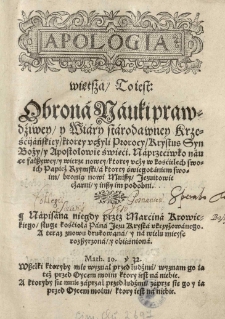 APOLOGIA
więtſza/ To ieſt:
Obroná Náuki praw-
dziwey/ y Wiáry ſtárodawney Krze-
śćijáńſkiey/ ktorey vcżyli Prorocy/ Kryſtus Syn
Boży/ y Apoſtołowie święći. Náprzećiwko náu-
ce fałſzywey/ y wierze nowey/ ktorey vcży w kośćiołach ſwo-
ich Papież Rzymſki/ á ktorey
bronią nowi
y inſzy im podobni.
Nápiſána niegdy przez Márćiná Krowic-
kiego/ ſługę kośćiołá Páná Jezu Kryſtá vkrzyżowánego.
A teraz znowu drukowána/ y ná wielu mieyſc
rozſzyrzona/ y obiáśniona.
Math. 10. y 22.
Wſzelki ktoryby mie wyznał przed ludźmi/ wyznam go ia
też przed Oycem moim ktory ieſt na niebie.
A ktoryby ſie mnie záprzał przed ludźmi/ záprzę ſie go y ia
przed Oycem moim/ ktory ieſt ná niebie.